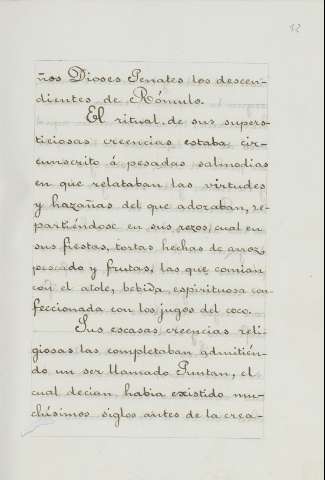 12
ños Dioses Penates los descen-
dientes de Rómulo.
El ritual de sus supers-
ticiosas creencias estaba cir-
cunscrito á pesadas salmodias
en que relataban las virtudes
y hazañas del que adoraban, re-
partiéndose en sus rezos, cual en
sus fiestas, tortas hechas de arroz,
pescado y frutas, las que comian
con el atole, bebida espirituosa con-
feccionada con los jugos del coco.
Sus escasas creencias reli-
giosas las completaban admitién-
do un ser llamado Puntan, el
cual decian habia existido mu-
chísimos siglos antes de la crea-